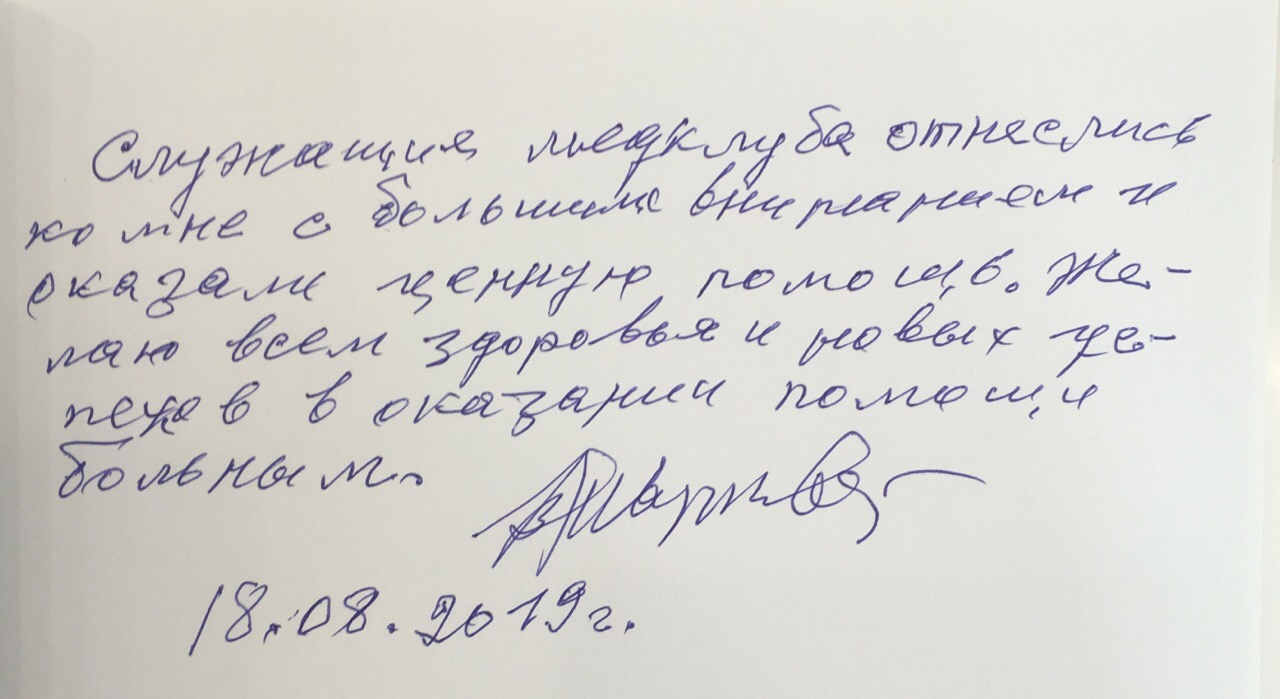 Служащие медклуба отнеслись
ко мне с большим вниманием и
оказали ценную помощь. Же-
лаю всем здоровья и новых ус-
пехов в оказании помощи
больным.
18.08.2019г.